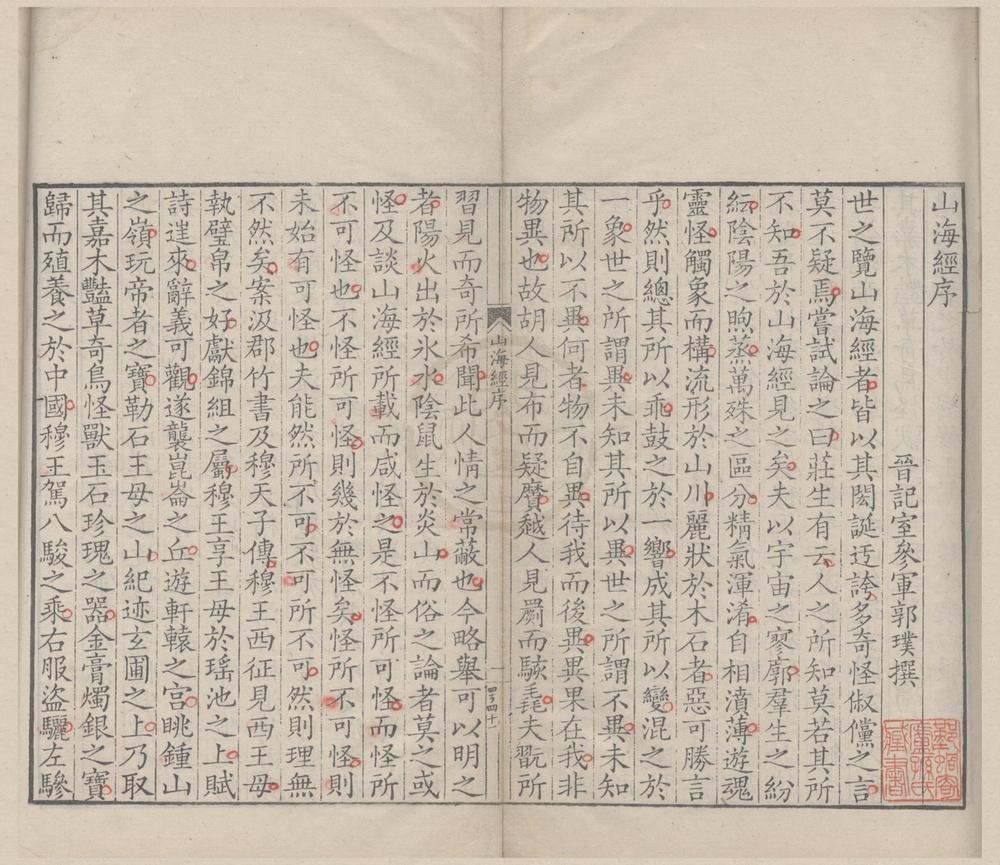 山海經序
晉記室參軍郭璞撰
世之覽山海經者皆以其閎誕迂誇多奇怪俶儻之言
莫不疑焉嘗試論之曰莊生有云人之所知莫若其所
不知吾於山海經見之矣夫以宇宙之寥廓羣生之紛
紜陰陽之煦蒸萬殊之區分精氣渾淆自相濆薄遊魂
靈怪觸象而構流形於山川麗狀於木石者惡可勝言
乎然則總其所以乖鼓之於一響成其所以變混之於
一象世之所謂異未知其所以異世之所謂不異未知
其所以不異何者物不自異待我而後異異果在我非
物異也故胡人見布而疑黂越人見罽而駭毳夫翫所
山海經序
一
習見而奇所希聞此人情之常蔽也今略舉可以明之
者陽火出於氷水陰鼠生於炎山而俗之論者莫之或
怪及談山海經所載而咸怪之是不怪所可怪而怪所
不可怪也不怪所可怪則幾於無怪矣怪所不可怪則
未始有可怪也夫能然所不可不可所不可然則理無
不然矣案汲郡竹書及穆天子傳穆王西征見西王母
執璧帛之好獻錦組之屬穆王享王母於瑤池之上賦
詩徃來辭義可觀遂襲崑崙之丘遊軒轅之宮眺鍾山
之嶺玩帝者之寶勒石王母之山紀迹玄圃之上乃取
其嘉木豔草奇鳥怪獸玉石珍瑰之器金膏燭銀之寶
歸而殖養之於中國穆王駕八駿之乘右服盜驪左驂
鄞蝸寄廬孫氏藏書